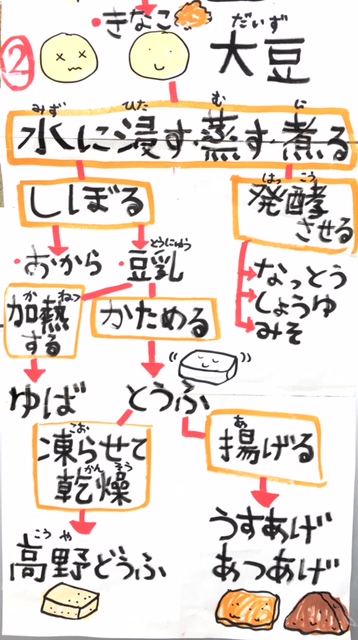 ・きなこ
だいず
② 大豆
みず ひた む に
水に浸す・蒸す・煮る
ししぼる
はっ こう
発酵
させる
・おから
とうにゅう
・豆乳
なっとう
しょうゆ
みそ
か ねつ
加熱
する
かためる
ゆば
とうふ
こお
凍らせて
かん そう
乾燥
あ
揚げる
こう や
高野どうふ
うすあげ
あつあげ